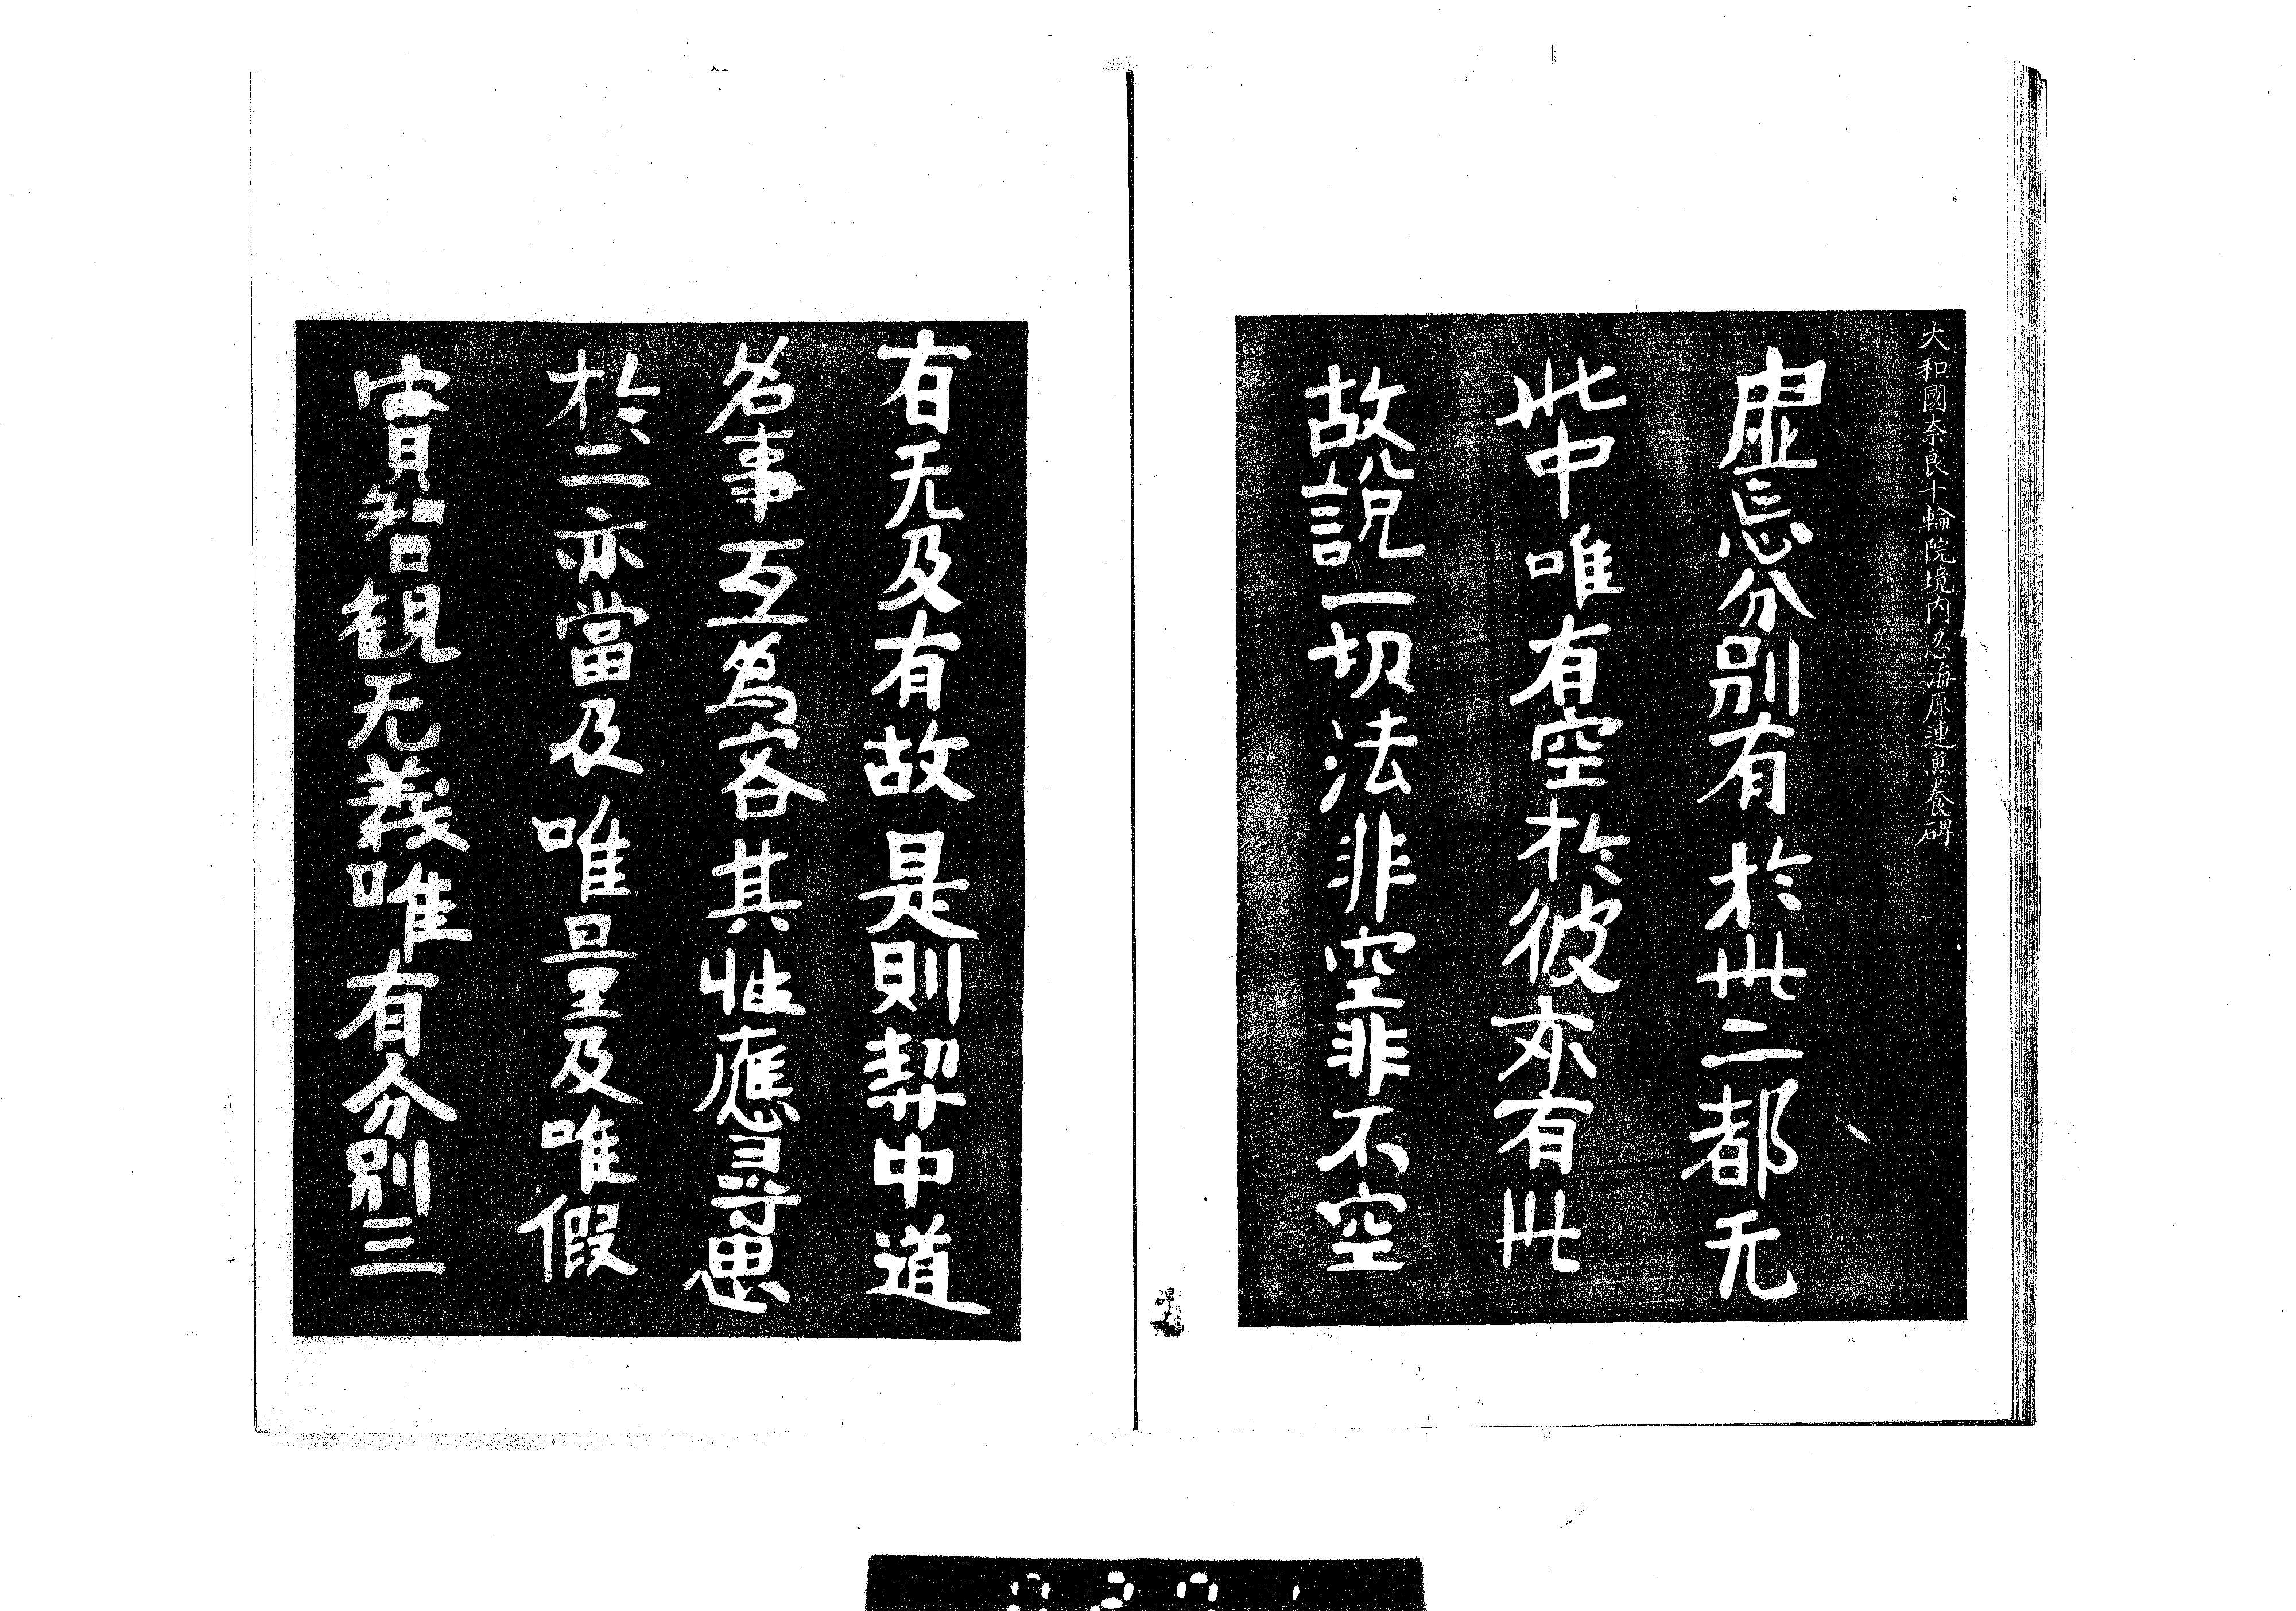 大和國奈良十輪院境内忍海原連魚養碑
虛忘分別有於此二都无
此中唯有空於彼亦有此
故說一切法非空非不空
有无及有故是則契中道
名事互爲客其性應尋思
於二亦當及唯量及唯假
實智觀无義唯有分別三